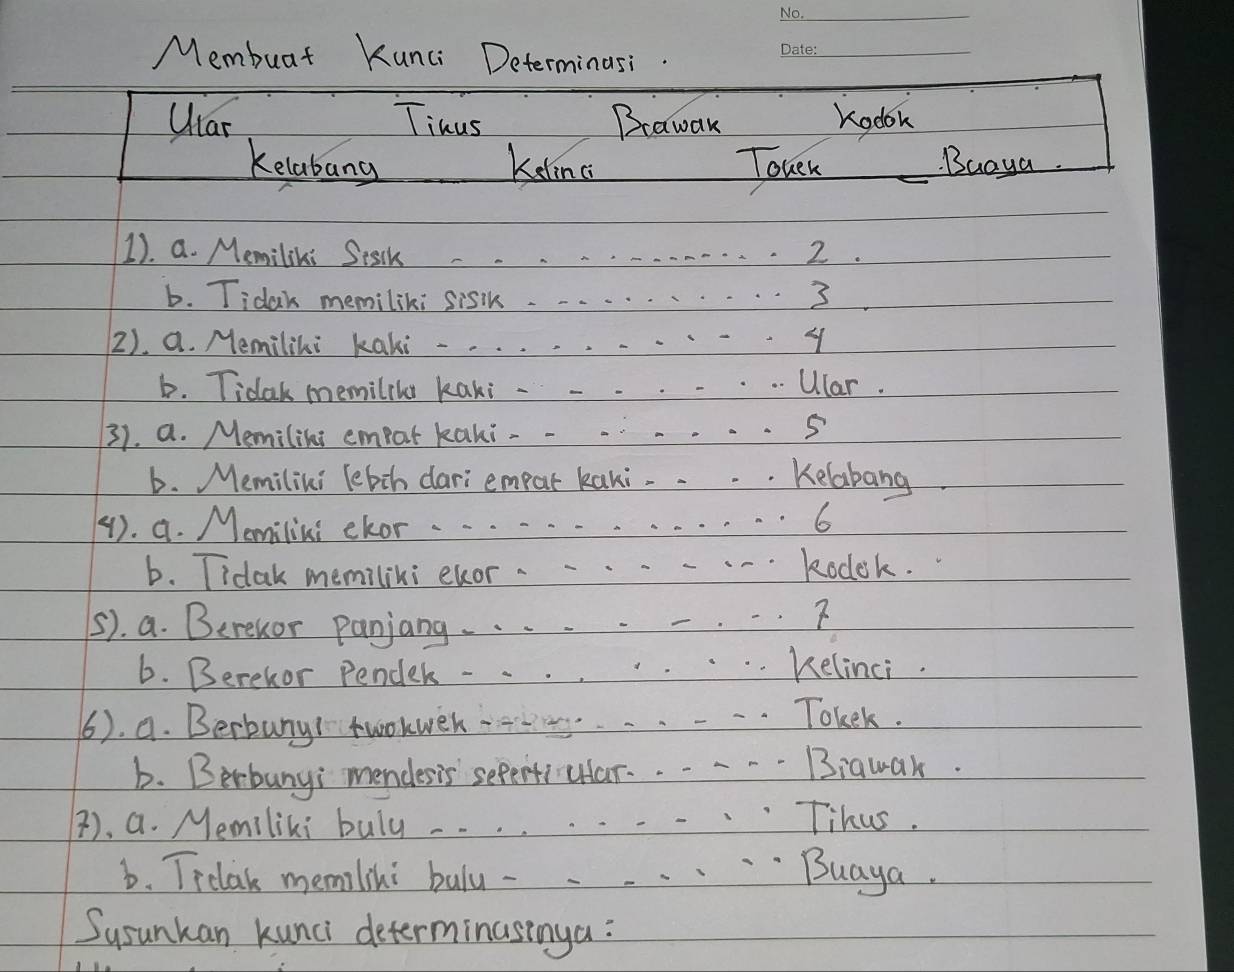 No.
Date:
Membuat Kunci Determinasi.
Ular Tikus Biawak Kodok
Kelabang Kelinci Tokek Buaya.
1). a. Memiliki Sisik - - - - - - - - - - - - 2.
b. Tidak memiliki sisik - - - - - - - - - - - 3.
2). a. Memiliki kaki - - - - - - - - - - - 4
b. Tidak memiliki kaki - - - - - - - Ular.
3). a. Memiliki empat kaki - - - - - - - - - 5
b. Memiliki lebih dari empat kaki - - - - Kelabang.
4). a. Memiliki ekor - - - - - - - - - - - - 6
b. Tidak memiliki ekor - - - - - - - - - kodok.
5). a. Berekor panjang - - - - - - - - - - 7
b. Berekor Pendek - - - - - - - - - Kelinci.
6). a. Berbunyi twokwek - - - - - - - - - Tokek.
b. Berbunyi mendesis seperti ular - - - - - - Biawak.
7). a. Memiliki bulu - - - - - - - - - - Tikus.
b. Tidak memiliki bulu - - - - - - - - Buaya.
Susunkan kunci determinasinya: